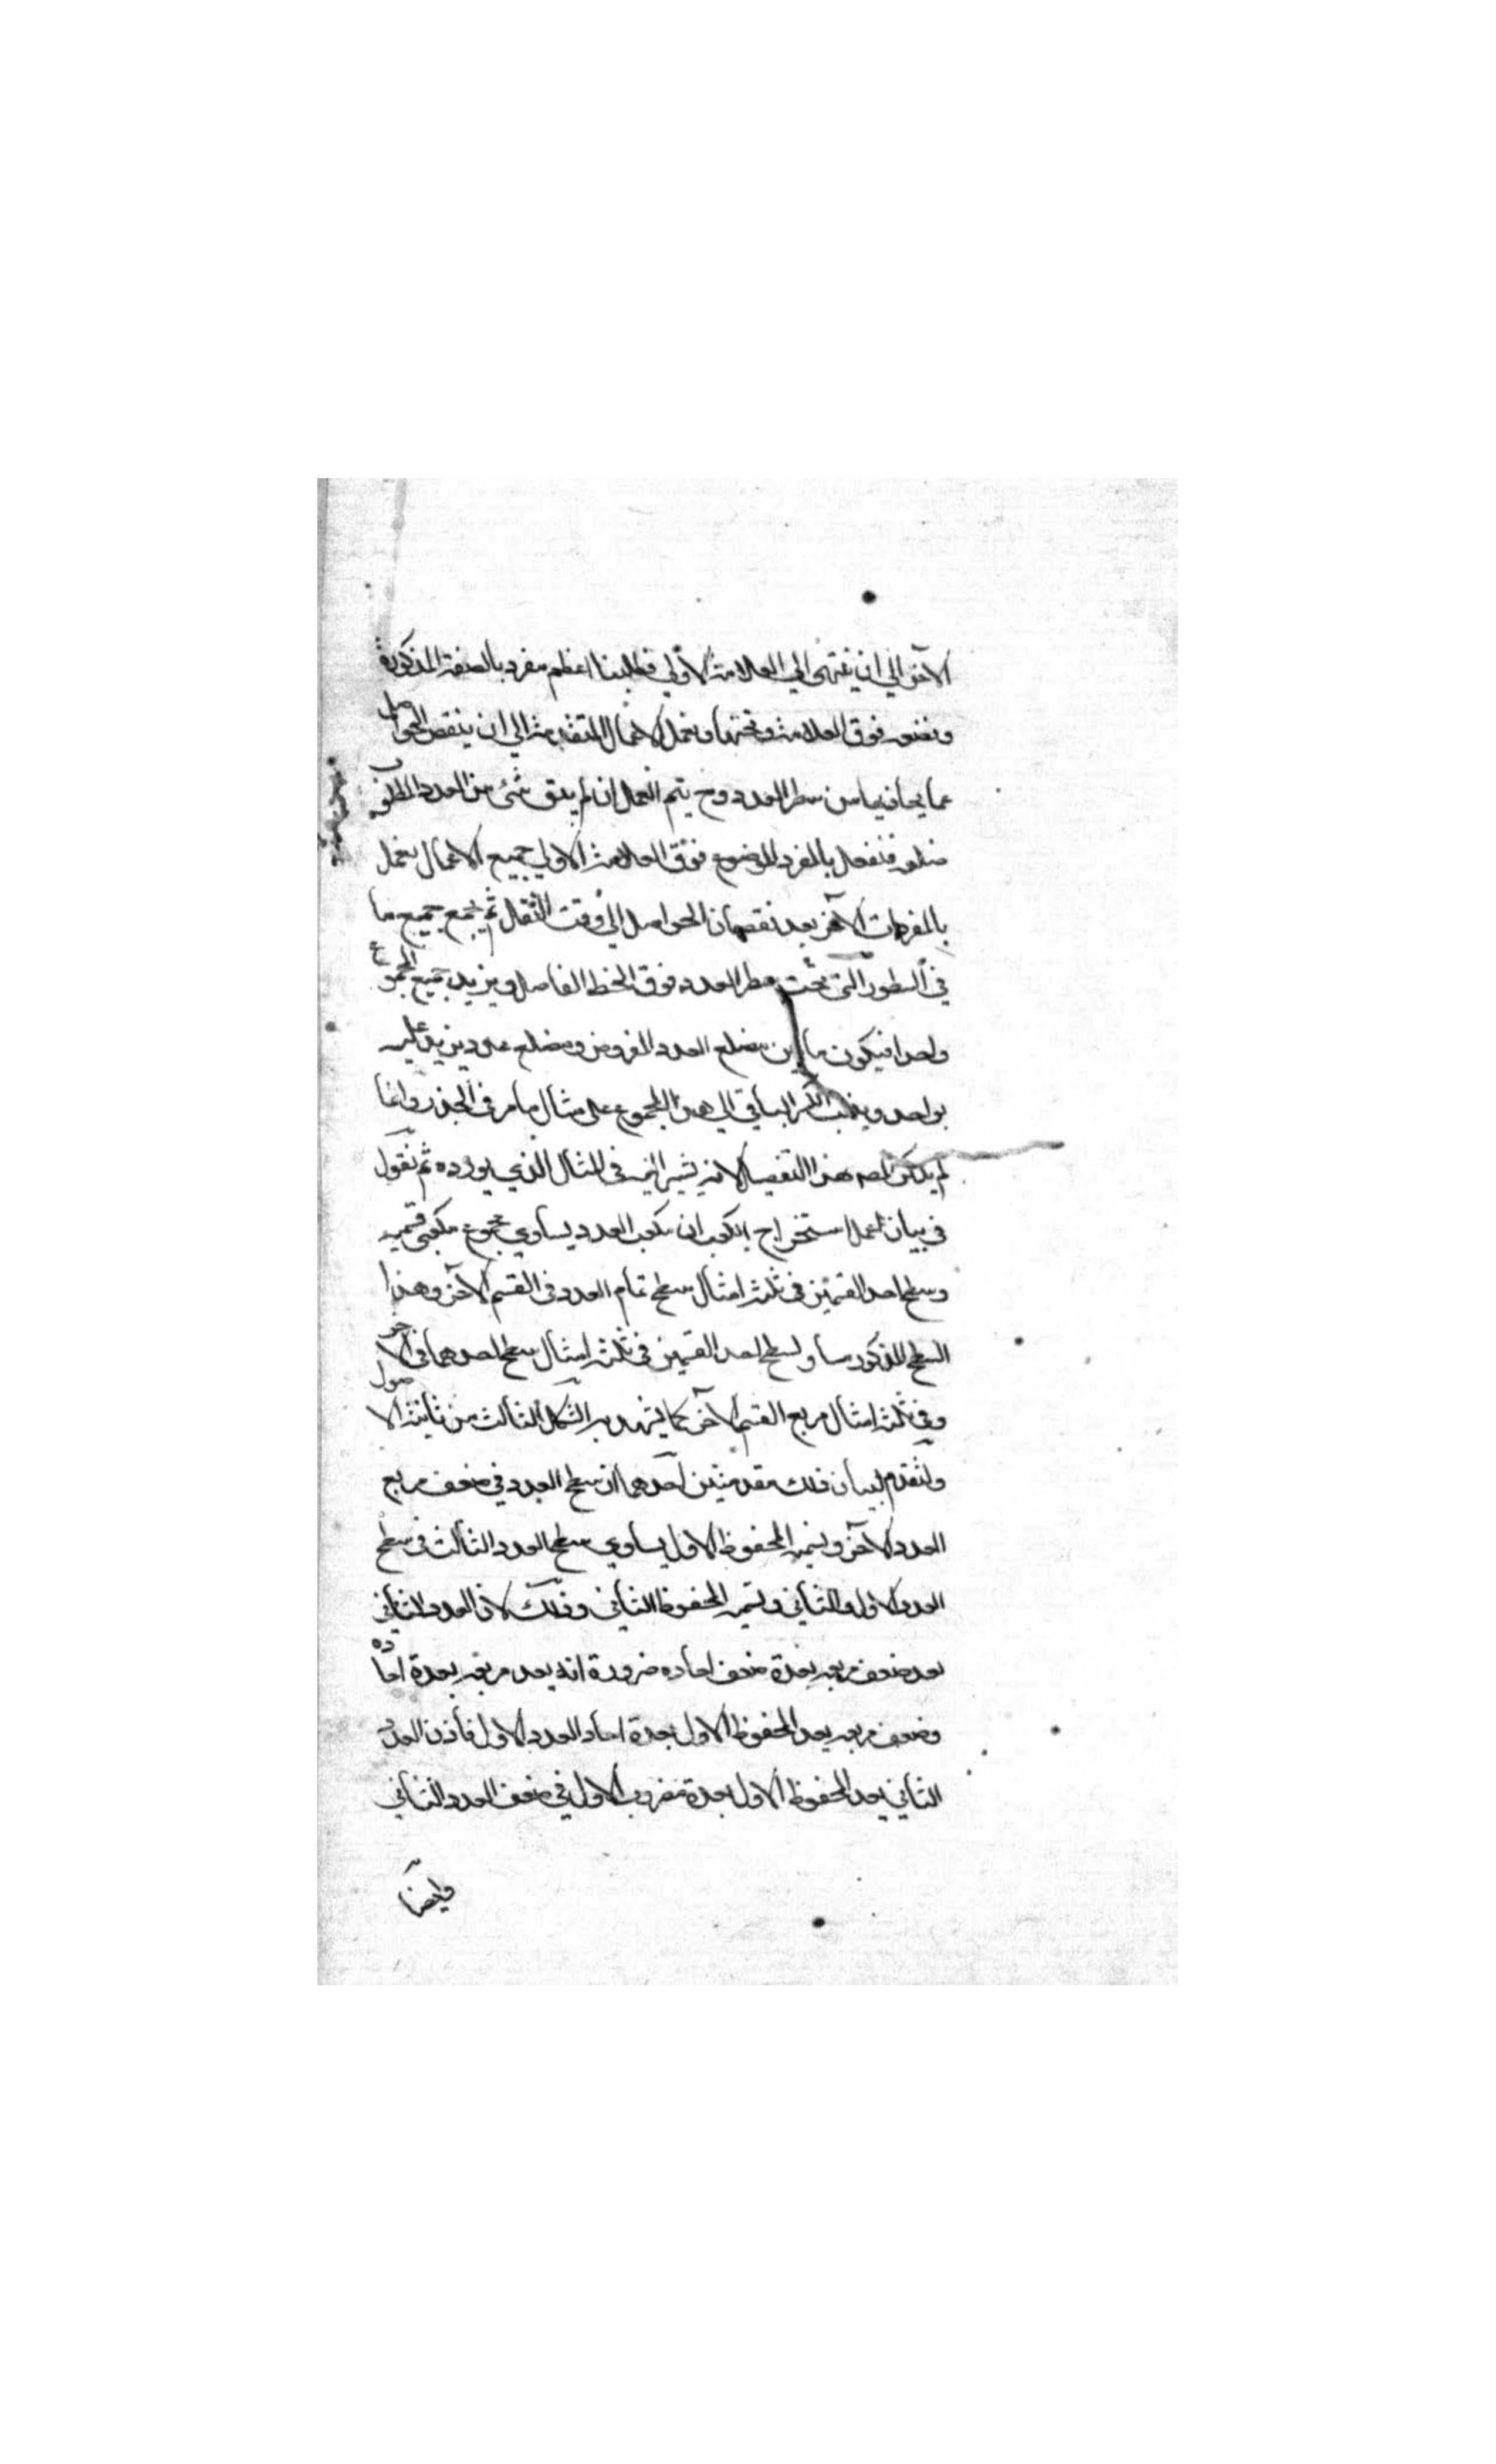 الآخر الي ان ينتهى الي العلامة الاولي فطلبنا اعظم مفرد بالصفة المذكورة
ونضعه فوق العلامة وتحتها ونعمل الاعمال المتقدمة الي ان ينقص الحواصل
عما يحاذيها من سطر العدد وح يتم العمل ان لم يبق شئ من العدد المطلوب
ضلعه فنفعل بالمفرد الموضوع فوق العلامة الاولي جميع الاعمال نعمل
بالمفردات الآخر بعد نقصان الحواصل الي وقت النقل ثم يجمع جميع ما
في السطور التى تحت سطر العدد فوق الخط الفاصل ويزيد جميع المجموع
واحدا فيكون ما بين مضلع العدد المفروض ومضلع عدد يزيد عليه
بواحد وينسب الكسر الباقي الي هذا المجموع على مثال ما مر في الجذر وانما
لم يذكر المصه هذا التفصيل لانه يشير اليه في المثال الذي يورده ثم نقول
في بيان عمل استخراج الكعب ان مكعب العدد يساوي مجموع مكعبى قسميه
وسطح احد القسمين في ثلثة امثال سطح تمام العدد في القسم الآخر وهذا
السطح المذكور مساو لسطح احد القسمين في ثلثة امثال سطح احدهما في الآخر
وفي ثلثة امثال مربع القسم الآخر كما يشهد به الشكل الثالث من ثانية الاصول
ولنقدم لبيان ذلك مقدمتين احدهما ان سطح العدد في ضعف مربع
العدد الآخر ويسمى المحفوظ الاول يساوي سطح العدد الثالث في سطح
العدد الاول والثاني ويسمى المحفوظ الثاني وذلك لان العدد الثاني
يعد ضعف مربعه بعدة ضعف احاده ضرورة انه يعد مربعه بعدة احاده
وضعف مربعه يعد المحفوظ الاول بعدة احاد العدد الاول فاذن العدد
الثاني يعد المحفوظ الاول بعدة مضروب الاول في ضعف العدد الثاني
وايضا